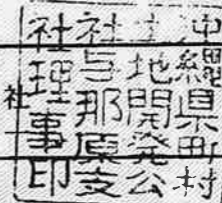 沖縄県町村
土地開発公
社与那原支
社理事印
社